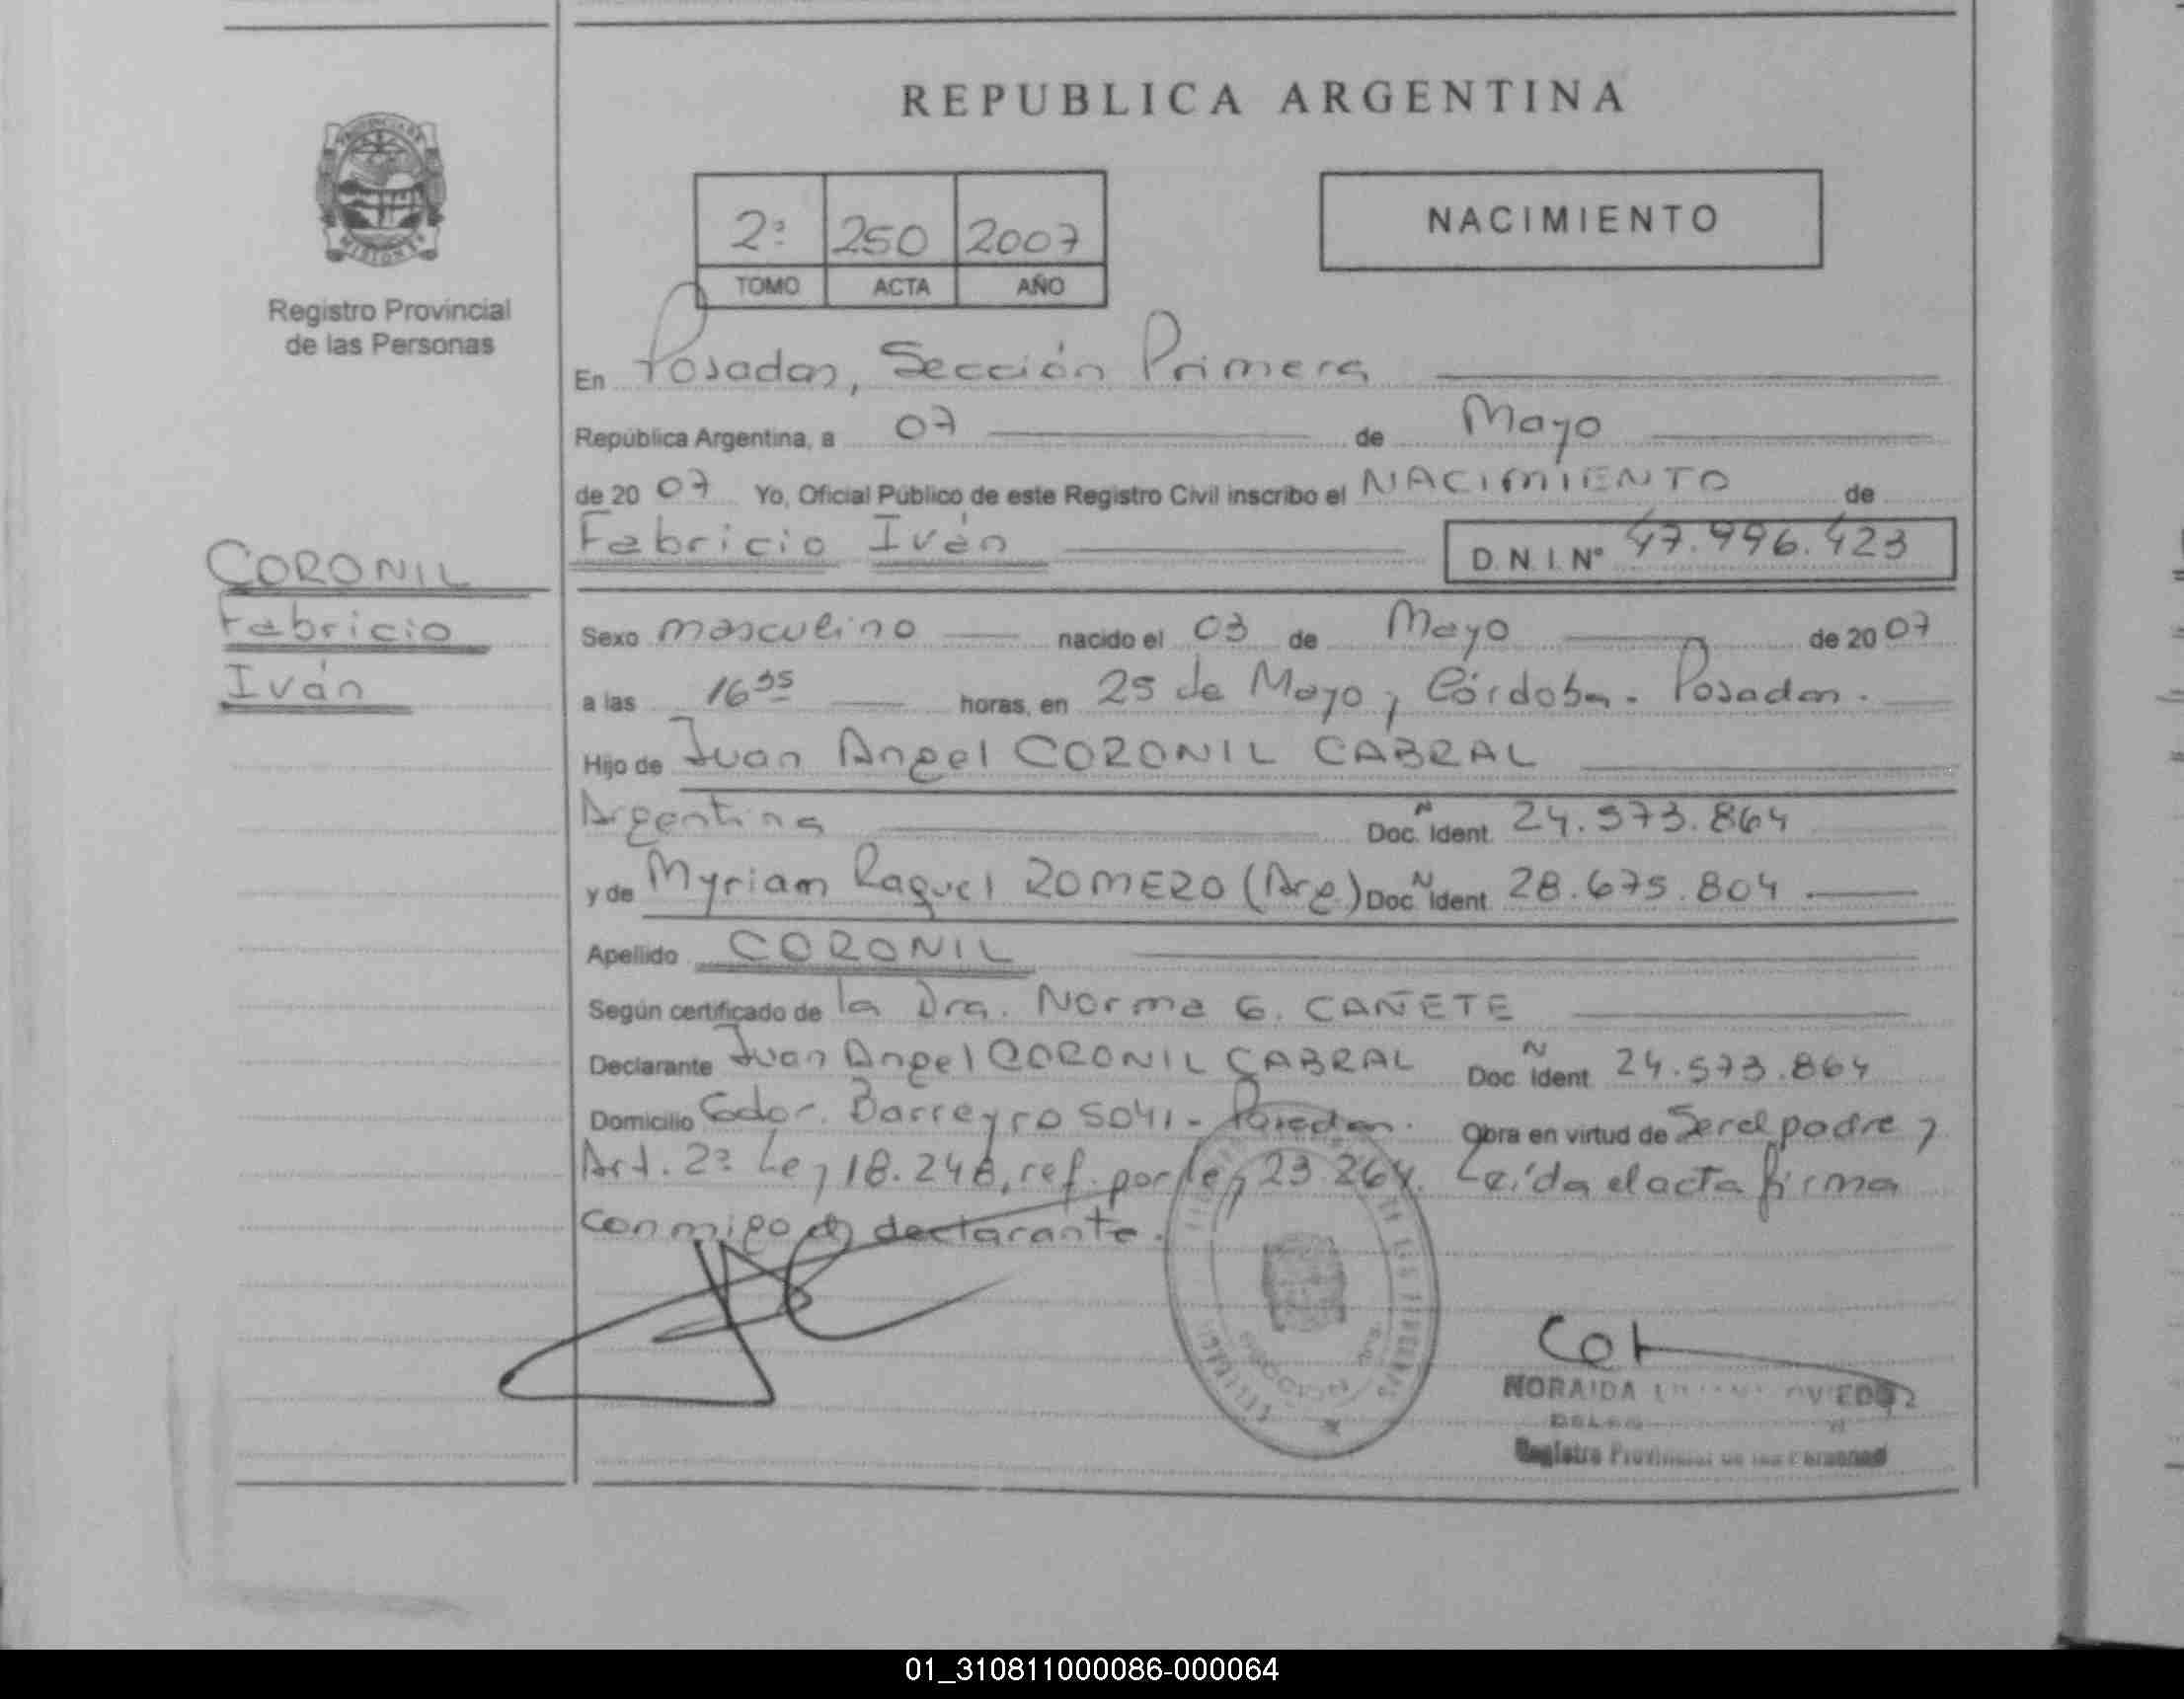 REPUBLICA ARGENTINA
2º 250 2007
TOMO ACTA AÑO
NACIMIENTO
Registro Provincial
de las Personas
En Posadas, Sección Primera
República Argentina, a 07 de Mayo
de 20 07 Yo, Oficial Público de este Registro Civil inscribo el NACIMIENTO de
Fabricio Iván D.N.I. Nº 47.996.423
CORONIL
Fabricio
Iván
Sexo masculino nacido el 03 de Mayo de 20 07
a las horas, en 25 de Mayo y Córdoba. Posadas.
Hijo de Juan Angel CORONIL CABRAL
Argentina Doc. N Ident. 24.573.864
y de Myriam Raquel ROMERO (Arg.) Doc. N Ident. 28.675.804
Apellido CORONIL
Según certificado de la Dra. Norma G. CAÑETE
Declarante Juan Angel CORONIL CABRAL Doc. N Ident. 24.573.864
Domicilio Gdor. Barreyro 5041 - Posadas. Obra en virtud de Ser el padre y
Art. 2º Ley 18.248, ref. por Ley 23.264. Leída el acta firma
conmigo el declarante.
NORAIDA OVIEDO
Registro Provincial de las Personas
01_310811000086-000064